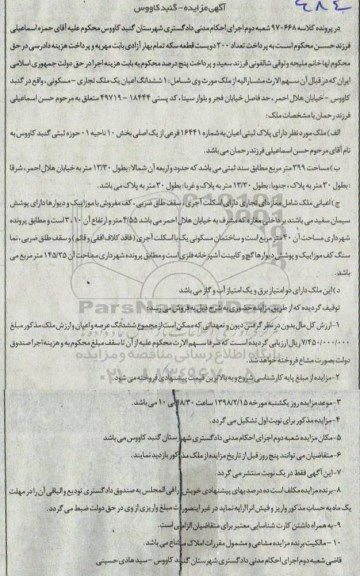 آگهی مزایده - گنبد کاووس
در پرونده کلاسه ۹۷۰۶۶۸ شعبه دوم اجرای احکام مدنی دادگستری شهرستان گنبد کاووس محکوم علیه آقای حمزه اسماعیلی
فرزند حسن محکوم است به پرداخت تعداد ۳۰۰ دویست قطعه سکه تمام بهار آزادی بابت مهریه و پرداخت هزینه دادرسی در حق
محکوم لها خانم ملیحه وثوقی شالفونی فرزند سعید و پرداخت پنج درصد محکوم به بابت هزینه اجرا در حق دولت جمهوری اسلامی
ایران که در قبال آن سهم الارث مشارالیه از ملک مورث وی شامل: ۱ ششدانگ اعیان یک ملک تجاری - مسکونی، واقع در گنبد
کاووس - خیابان هلال احمر، حد فاصل خیابان فجر و بلوار سینا، کد پستی ۱۸۴۴۴ - ۴۹۷۱۹ متعلق به مرحوم حسن اسماعیلی
فرزند رحمان با مشخصات ملک:
الف) ملک مورد نظر دارای پلاک ثبتی اعیان به شماره ۱۶۴۴۱ فرعی از یک اصلی بخش ۱۰ ناحیه ۱ - حوزه ثبتی گنبد کاووس به
نام آقای مرحوم حسن اسماعیلی فرزند رحمان می باشد.
ب) مساحت ۳۹۹ متر مربع مطابق سند ثبتی می باشد که حدود و اربعه آن شمالا: بطول ۱۳/۳۰ متر به خیابان هلال احمر، شرقا
: بطول ۳۰ متر به پلاک، جنوبا: بطول ۱۳/۳۰ متر به پلاک و غربا: بطول ۳۰ متر به پلاک می باشد.
ج) اعیانی ملک شامل مغازه ای تجاری دارای اسکلت آجری، سقف طاق ضربی، کف مفروش با موزاییک و دیوارها دارای پوشش
سیمان سفید می باشند بر داخلی مغازه که مشرف به خیابان هلال احمر می باشد ۴/۵۵ متر و ارتفاع آن ۳،۱۰ است و مطابق پرونده
شهرداری مساحت آن ۲۰ متر مربع است و ساختمان مسکونی یک با اسکلت آجری (فاقد کلاف افقی و قائم) و سقف طاق ضربی، نما
سنگ کف موزاییک و پوشش دیوارها گچ و کابینت آشپزخانه فلزی است و مطابق پرونده شهرداری مساحت آن ۱۴۵/۲۵ متر مربع می
باشد.
د) این ملک دارای دو امتیاز برق و یک امتیاز آب و گاز می باشد
توقیف گردیده که از طریق مزایده حضوری به شرح ذیل به فروش می رسد:
۱- ارزش کل مال بدون در نظر گرفتن دیون و تعهداتی که ممکن است از مجموع ششدانگ عرصه و اعیان و ارزش ملک مذکور مبلغ
۷/۴۵۰/۰۰۰/۰۰۰ ریال ارزیابی گردیده است که صرفا سهم الارث محکوم علیه از آن تا سقف مبلغ محکوم به و هزینه اجرا صندوق
دولت بصورت مشاع فروخته خواهد شد.
۲- مزایده از مبلغ پایه کارشناسی شروع و به بالاترین قیمت پیشنهادی فروخته می شود.
۳- موعد مزایده روز یکشنبه مورخه ۱۳۹۸/۲/۱۵ ساعت ۸/۳۰ الی ۱۰ می باشد.
۴- مزایده مذکور برای نوبت اول تشکیل می گردد.
۵- مکان مزایده شعبه دوم اجرای احکام مدنی دادگستری شهرستان گنبد کاووس می باشد
۶- متقاضیان می توانند پنج روز قبل از تاریخ مزایده از ملک مذکور بازدید نمایند.
۷- این آگهی فقط در یک نوبت منتشر می گردد.
۸- برنده مزایده مکلف است ده درصد بهای پیشنهادی خویش را فی المجلس به صندوق دادگستری تودیع و الباقی آن را در مهلت
یک ماه به حساب مذکور واریز و فیش آنرا ارایه نماید در غیر اینصورت مبلغ واریزی از وی در حق دولت ضبط می گردد.
۹- به همراه داشتن کارت شناسایی معتبر برای متقاضیان الزامی است.
۱۰- مالکیت برنده مزایده مشاعی و مشمول مقررات املاک مشاع می باشد.
قاضی شعبه دوم اجرای احکام مدنی دادگستری شهرستان گنبد کاووس - سید هادی حسینی